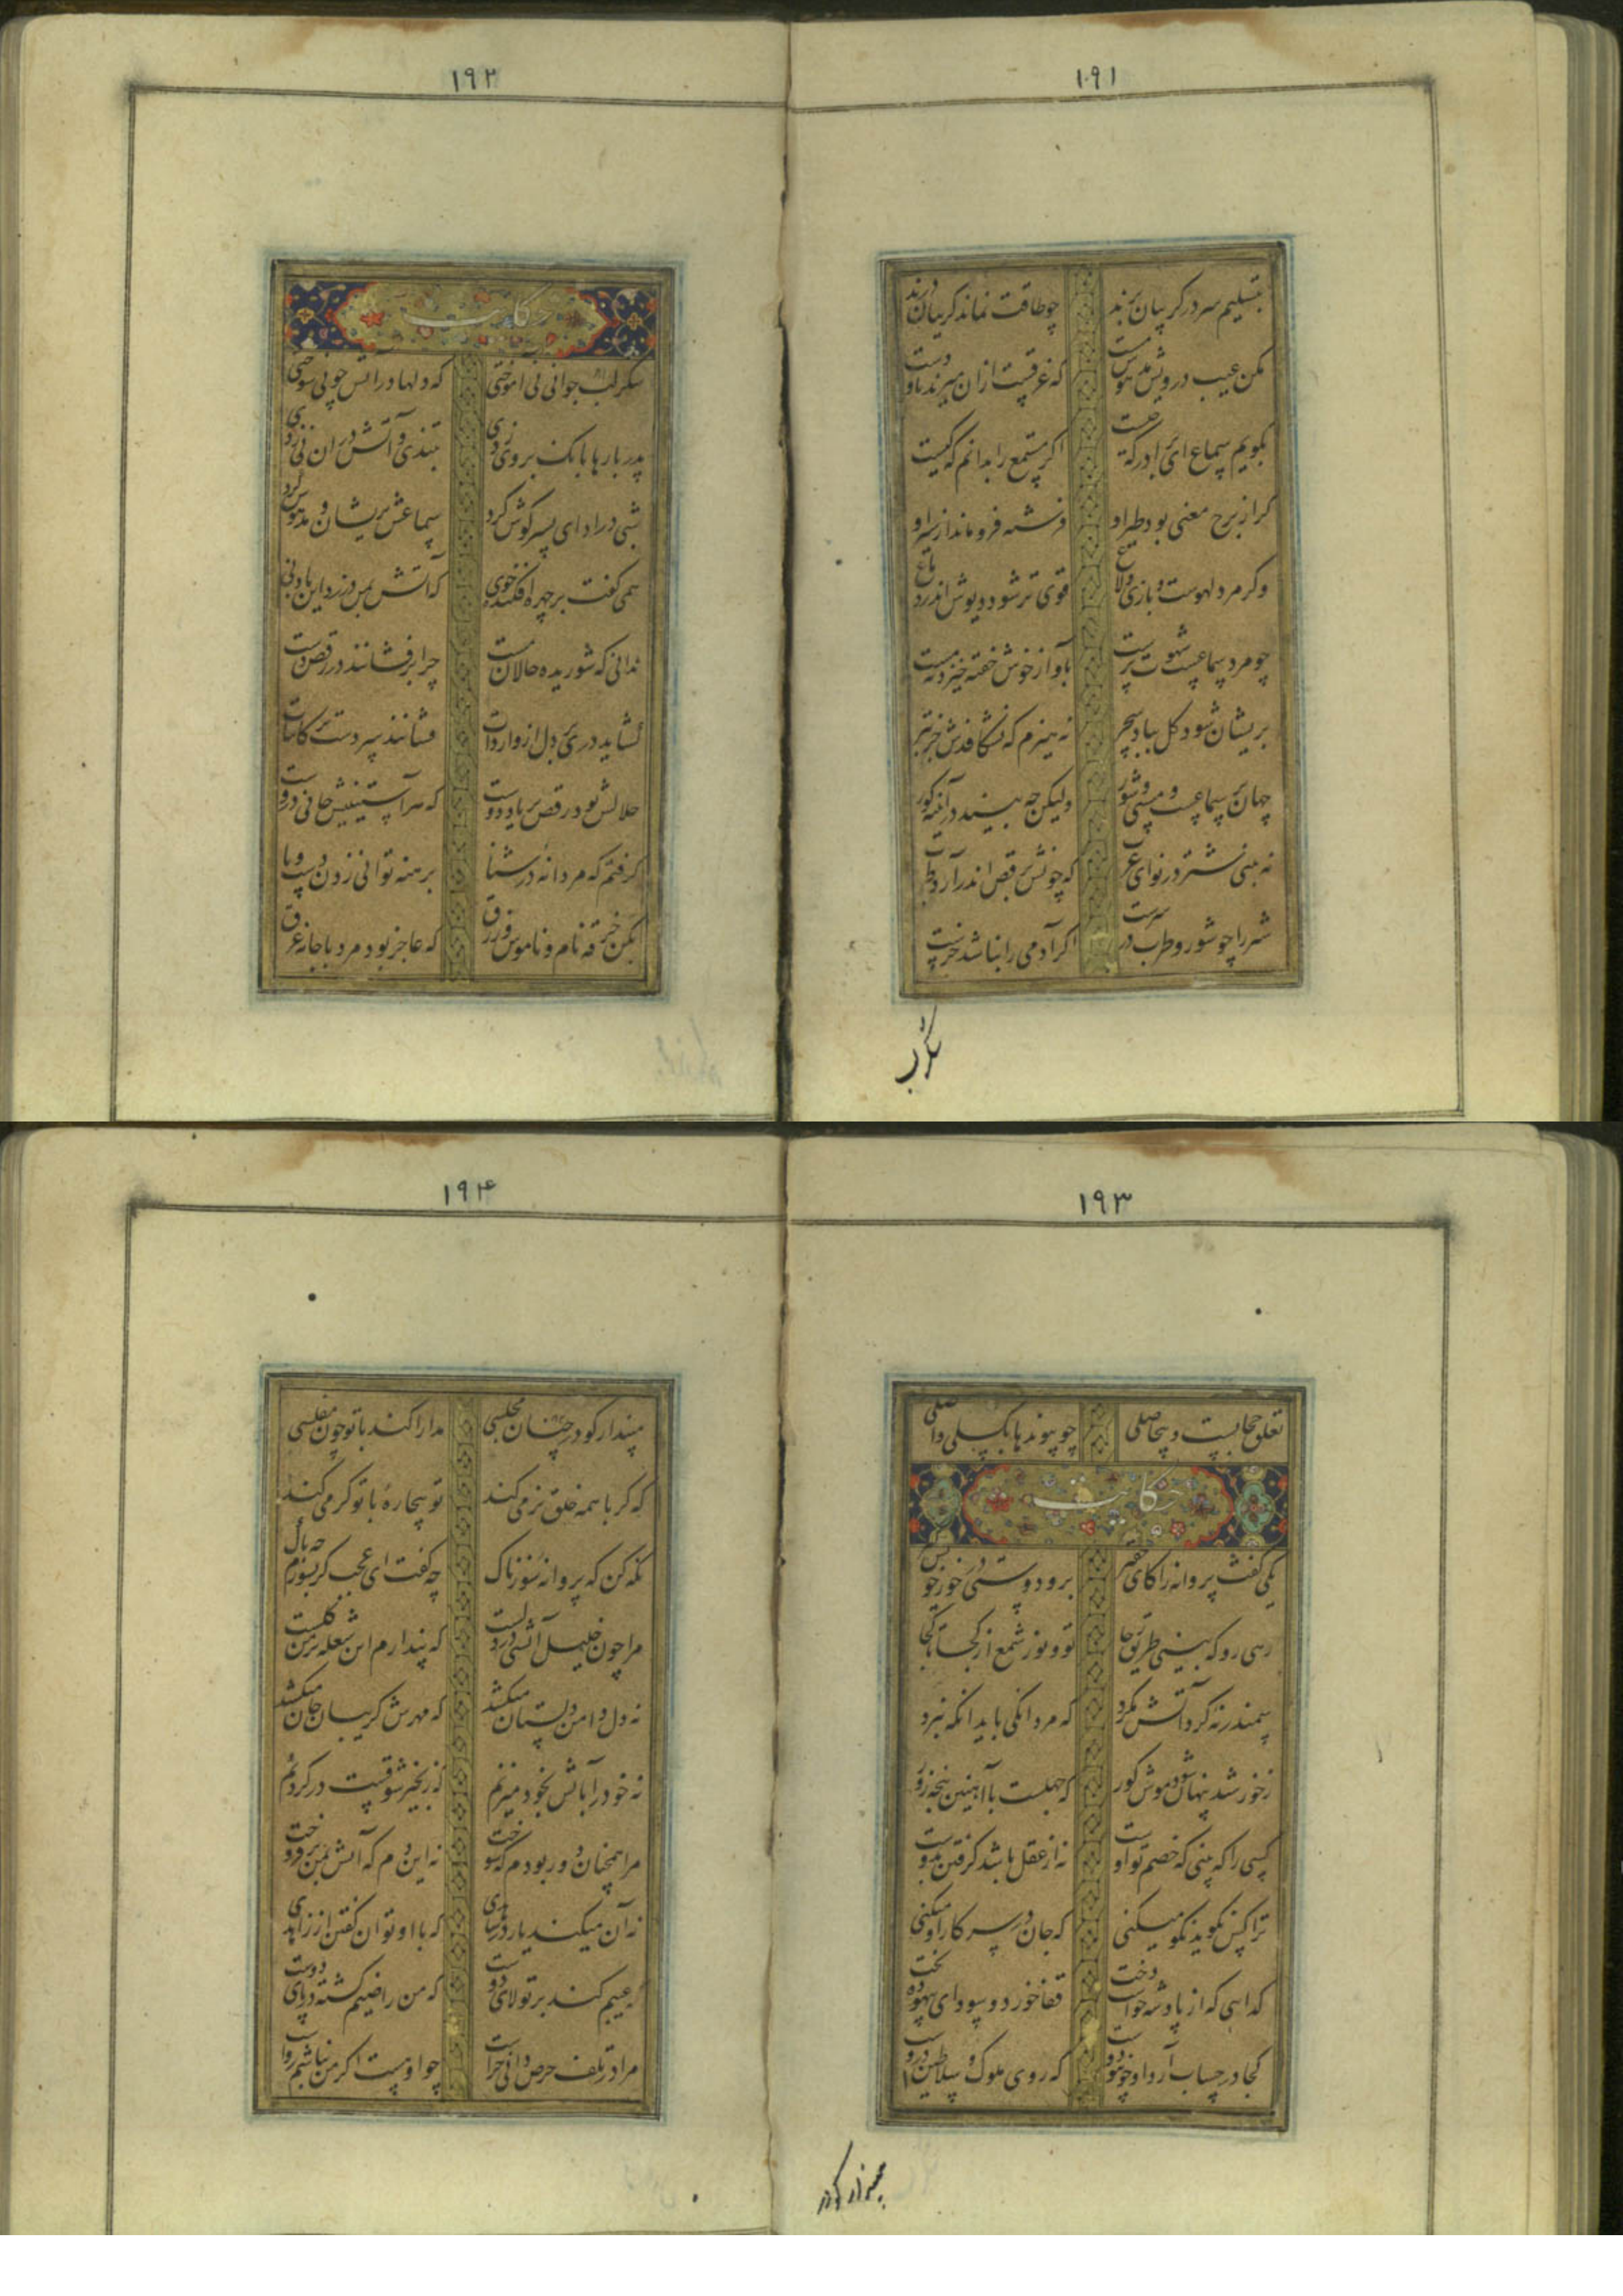 ۱۹۱
بتسلیم سر در کریبان برند چو طاقت نماند کریبان درند
مکن عیب درویش مدهوش مست که غرقست ازان میزند پا و دست
نکویم سماع ای برادر که چیست اکر مستمع را بدانم که کیست
کر از برج معنی بود طیر او فرشته فرو ماند از سیر او
وکر مرد لهوست و بازی و لاغ قوی تر شود دیوش اندر دماغ
چو مرد سماعست شهوت پرست بآواز خوش خفته خیزد نه مست
پریشان شود کل بباد سحر نه هیزم که نشکافدش جز تبر
جهان پر سماعست و مستی و شور ولیکن چه بیند در آینه کور
نه بینی شتر در نوای عرب که چونش برقص اندر آرد طرب
شتر را چو شور و طرب در سرست اکر آدمی را نباشد خرست
شکر لب
۱۹۲
حکایت
شکر لب جوانی نی آموختی که دلها در آتش چو نی سوختی
پدر بارها بانک بر وی زدی بتندی و آتش در ان نی زدی
شبی در ادای پسر کوش کرد سماعش پریشان و مدهوش کرد
همی کفت بر چهره افکنده خوی که آتش بمن در زد این بار نی
ندانی که شوریده حالان مست چرا بر فشانند در رقص دست
کشاید دری بر دل از واردات فشانند سر دست بر کاینات
حلالش بود رقص بر یاد دوست که هر آستینیش جانی دروست
کرفتم که مردانهٔ در شنا برهنه توانی زدن دست و پا
بکن خرقه نام و ناموس و زرق که عاجز بود مرد با جامه غرق
۱۹۳
تعلق حجابست و بیحاصلی چو پیوندها بکسلی واصلی
حکایت
یکی کفت پروانه را کای حقیر برو دوستی در خور خویش
رهی رو که بینی طریق رجا تو و نور شمع از کجا تا کجا
سمندر نه کرد آتش مکرد که مردانکی باید انکه نبرد
ز خورشید پنهان شود موش کور که جهلست با آهنین پنجه زور
کسی را که بینی که خصم تو اوست نه از عقل باشد کرفتن بدوست
ترا کس نکوید نکو میکنی که جان در سر کار او میکنی
کدایی که از پادشه خواست دخت قفا خورد و سودای بیهوده پخت
کجا در حساب آرد او چو تو دوست که روی ملوک و سلاطین دروست
مپندار کو در
۱۹۴
مپندار کو در چنان مجلسی مدارا کند با تو چون مفلسی
که کر با همه خلق نرمی کند تو بیچارهٔ با تو کرمی کند
نکه کن که پروانه سوزناک چه کفت ای عجب کر بسوزم چه باک
مرا چون خلیل آتشی در دلست که پندارم این شعله بر من کلست
نه دل دامن دلستان میکشد که مهرش کریبان جان میکشد
نه خود را بآتش بخود میزنم که زنجیر شوقست در کردنم
مرا همچنان دور بودم که سوخت نه این دم که آتش بمن بر فروخت
نه آن میکند یار در شاهدی که با او توان کفتن از زاهدی
که عیبم کند بر تولای دوست که من راضیم کشته در پای دوست
مرا در تلف حرص دانی چراست چو او هست اکر من نباشم رواست